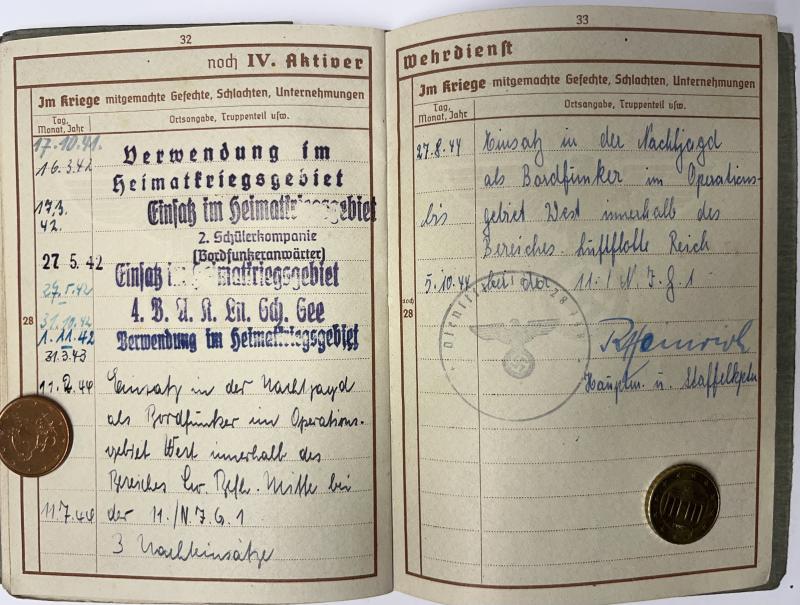 32
noch IV. Aktiver
Im Kriege mitgemachte Gefechte, Schlachten, Unternehmungen
Tag, Monat, Jahr
Ortsangabe, Truppenteil usw.
17.10.41.
16.3.42
Verwendung im
Heimatkriegsgebiet
17.3.
42.
Einsatz im Heimatkriegsgebiet
2. Schülerkompanie
(Bordfunkeranwärter)
27 5. 42
Einsatz im Heimatkriegsgebiet
31.10.42
4. B. A. K. Ln. Sch. See
28
1. 11. 42
Verwendung im Heimatkriegsgebiet
31.3.43
11.2.44 Einsatz in der Nachtjagd
als Bordfunker im Operations-
gebiet West innerhalb des
Bereiches Lw. Befh. Mitte bei
11.7.44 der 11./N.J.G.1
3 Nachteinsätze
33
Wehrdienst
Im Kriege mitgemachte Gefechte, Schlachten, Unternehmungen
Tag, Monat, Jahr
Ortsangabe, Truppenteil usw.
27.8.44 Einsatz in der Nachtjagd
als Bordfunker im Operations-
bis gebiet West innerhalb des
Bereiches Luftflotte Reich
5.10.44 bei der 11./N.J.G.1
noch
28
Hauptm. u. Staffelkptn